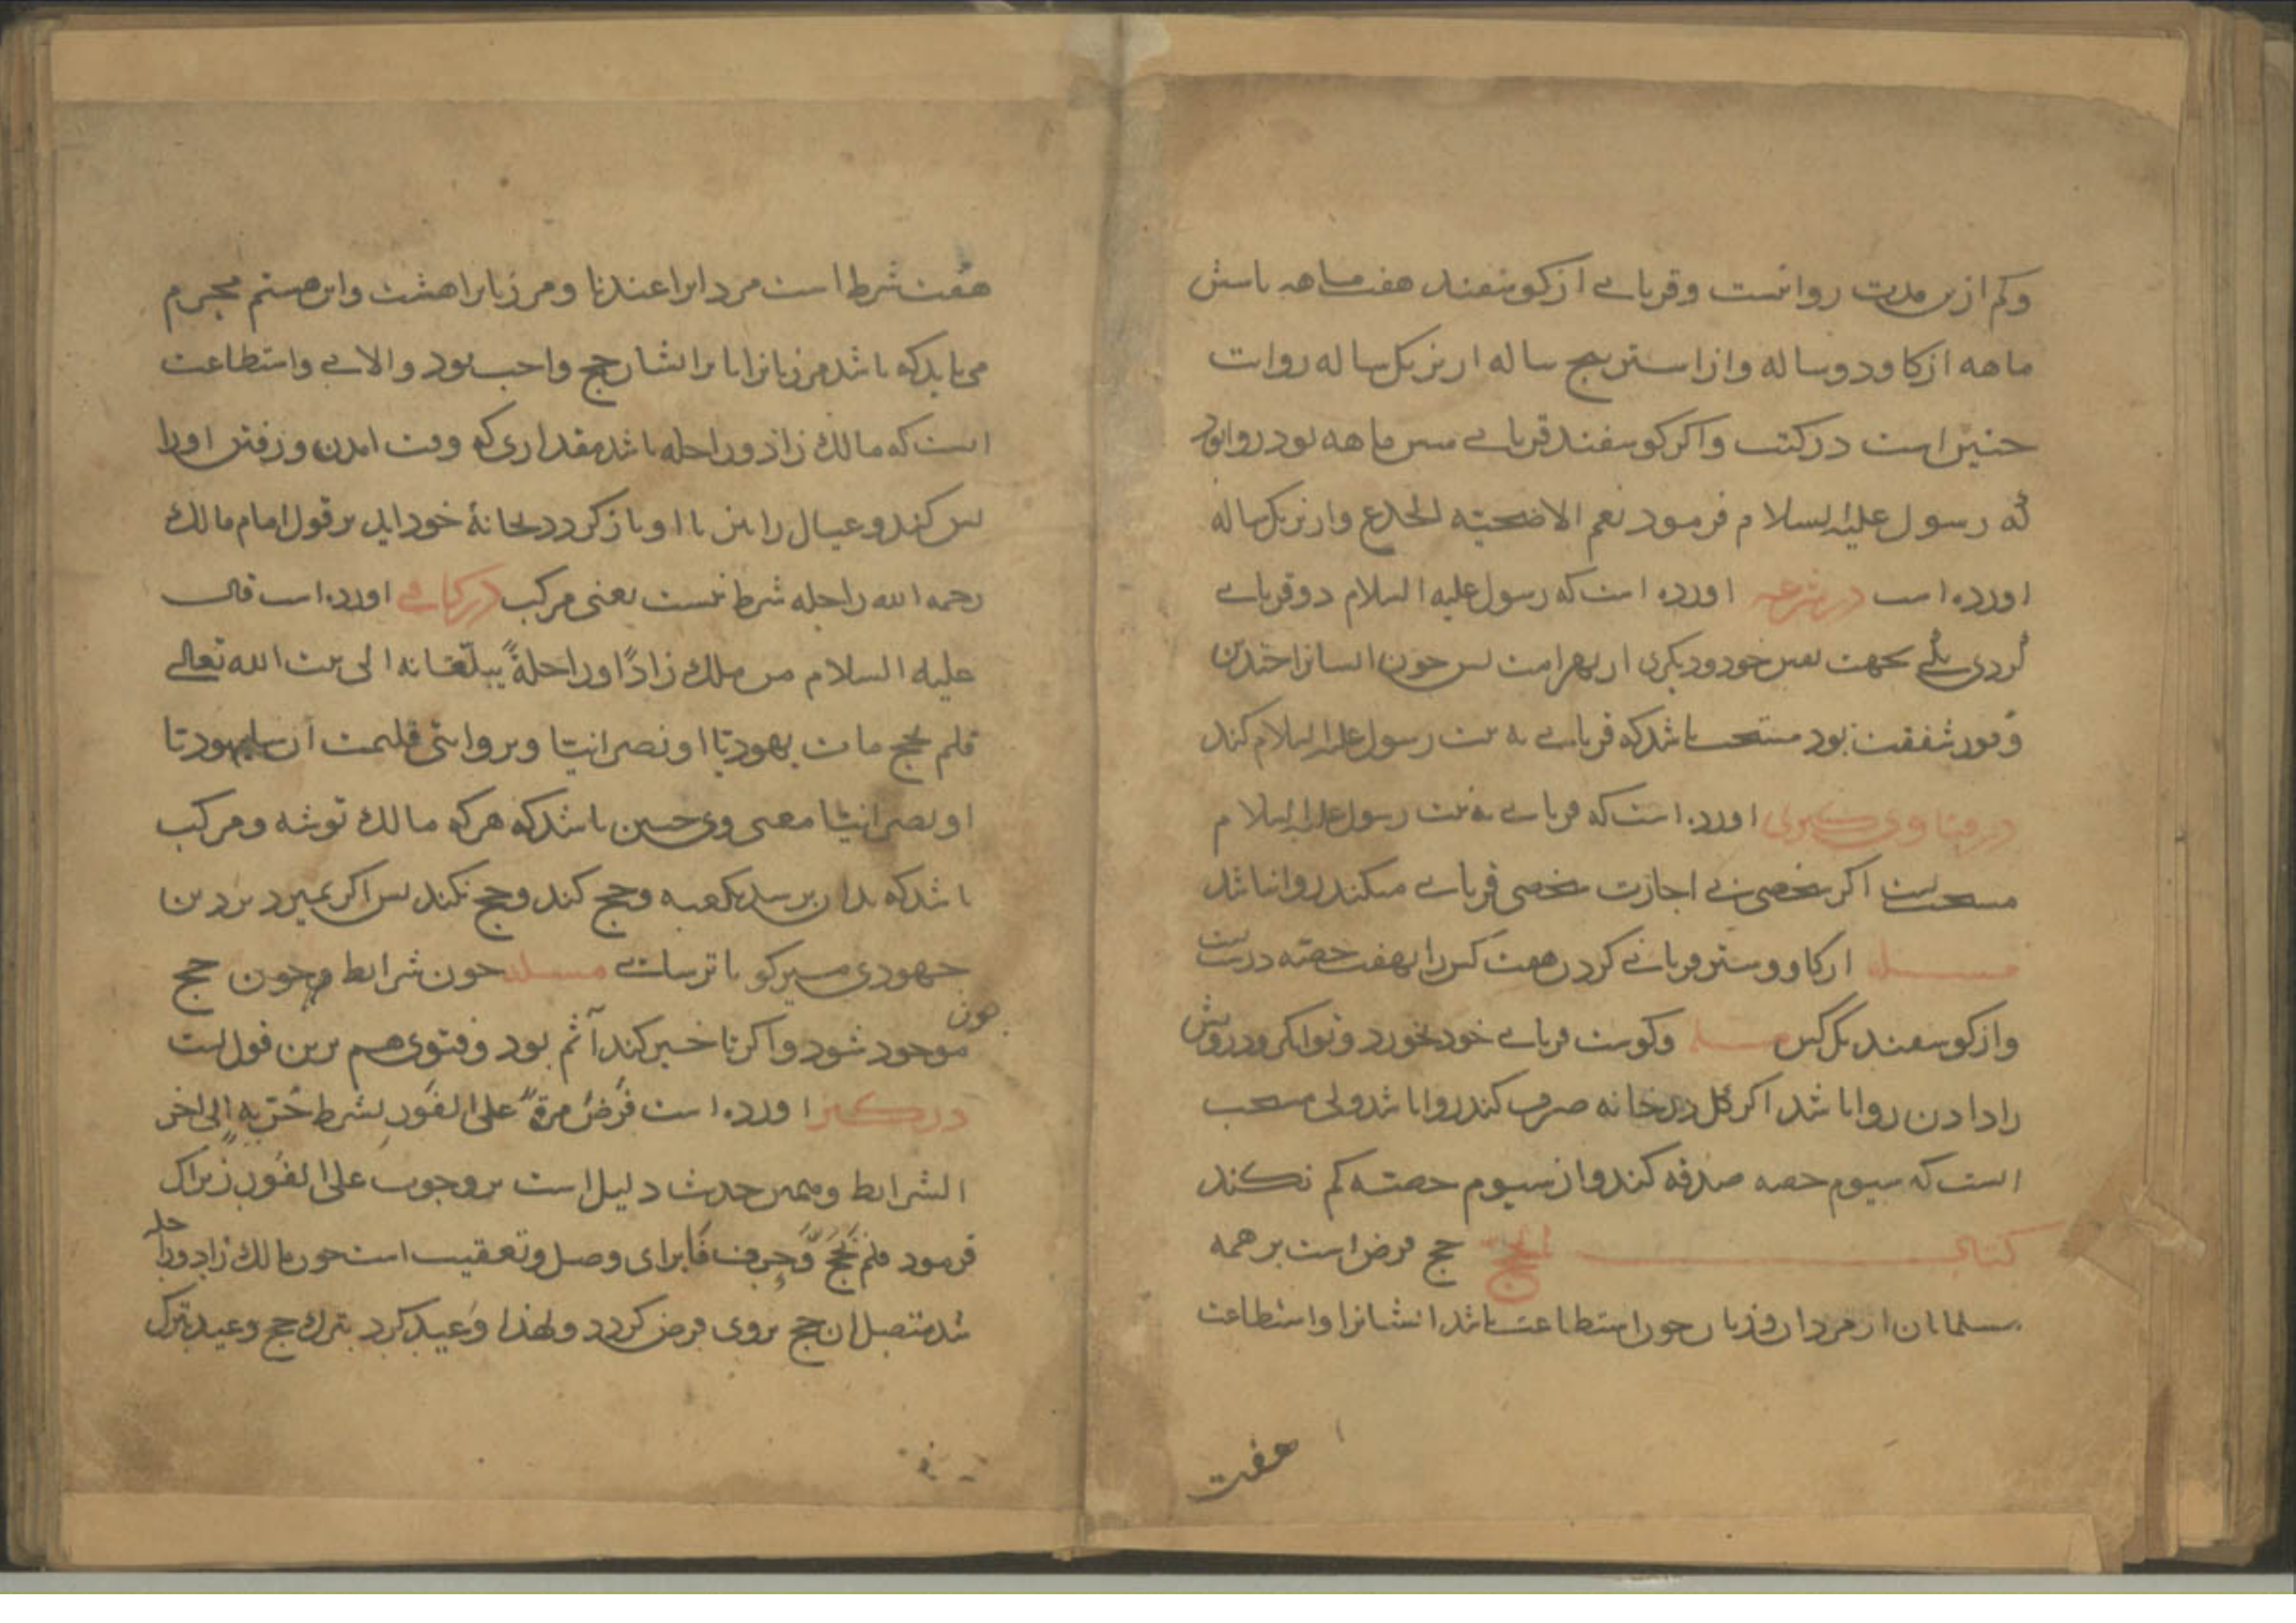 وکم ازین مدت روا نیست و قربانے از کوسفند هفت ماهه یا شش
ماهه از کاو دو ساله و از استر پنج ساله از بز یکساله رواست
چنین است در کتب و اکر کوسفند قربانے شش ماهه بود روا بود
که رسول علیه السلام فرمود نعم الاضحیته الجذع و از بز یکساله
اورده است در شرعه اورده است که رسول علیه السلام دو قربانے
کردی یکے بجهت نفس خود و دیکری از بهر امت پس چون ایشانرا چندین
وفور شفقت بود مستحب باشد که قربانے به نیت رسول علیه السلام کند
در فتاوی کبری اورده است که قربانے به نیت رسول علیه السلام
مستحب است اکر شخصی بے اجازت شخصی قربانے میکند روا نباشد
مسله از کاو و ستر قربانے کردن هفت کس را بهفت حصته درست است
و از کوسفند یک کس مسله و کوشت قربانے خود بخورد و توانکر و درویش
را دادن روا باشد اکر کل در خانه صرف کند روا باشد ولی مستحب
است که سیوم حصه صدقه کند و از سیوم حصته کم نکند
کتاب الحج حج فرض است بر همه
مسلمانان از مردان و زنان چون استطاعت باشد ایشانرا و استطاعت
هفت
هفت شرط است مردانرا عندنا و مر زنانرا هشت و این هشتم محرم
می باید که باشد مر زنانرا تا بر ایشان حج واجب بود و الا نے و استطاعت
است که مالك زاد و راحله باشد مقداری که وقت امدن و رفتن اورا
بس کند و عیال را نیز تا او باز کردد بخانهٔ خود اید بر قول امام مالك
رحمه الله راحله شرط نیست یعنی مرکب در کافے اورده است قال
علیه السلام من ملك زاداً او راحلةً یبلّغانه الی بیت الله تعالے
فلم یحج مات یهودیّا او نصرانیّا و بروایتی فلیمت ان یهودیّا
او نصرانیّا معنی وی چنین باشد که هر که مالك توشه و مرکب
باشد که بدان برسد بکعبه و حج کند و حج نکند پس اکر بمیرد بر دین
جهودی میر کو یا ترسائے مسله چون شرایط وجوب حج
موجود شود و اکر تاخیر کند آثم بود و فتوی هم برین قول است
در کنز اورده است فرض مرة علی الفور بشرط حُرّیه الی اخر
الشرایط و همین حدیث دلیل است بر وجوب علی الفور زیراک
فرمود فلم یحج و حرف فا برای وصل و تعقیب است چون مالك زاد و راحله
شد متصل ان حج بر وی فرض کردد و لهذا وعید کرد بترك حج و عید بترك